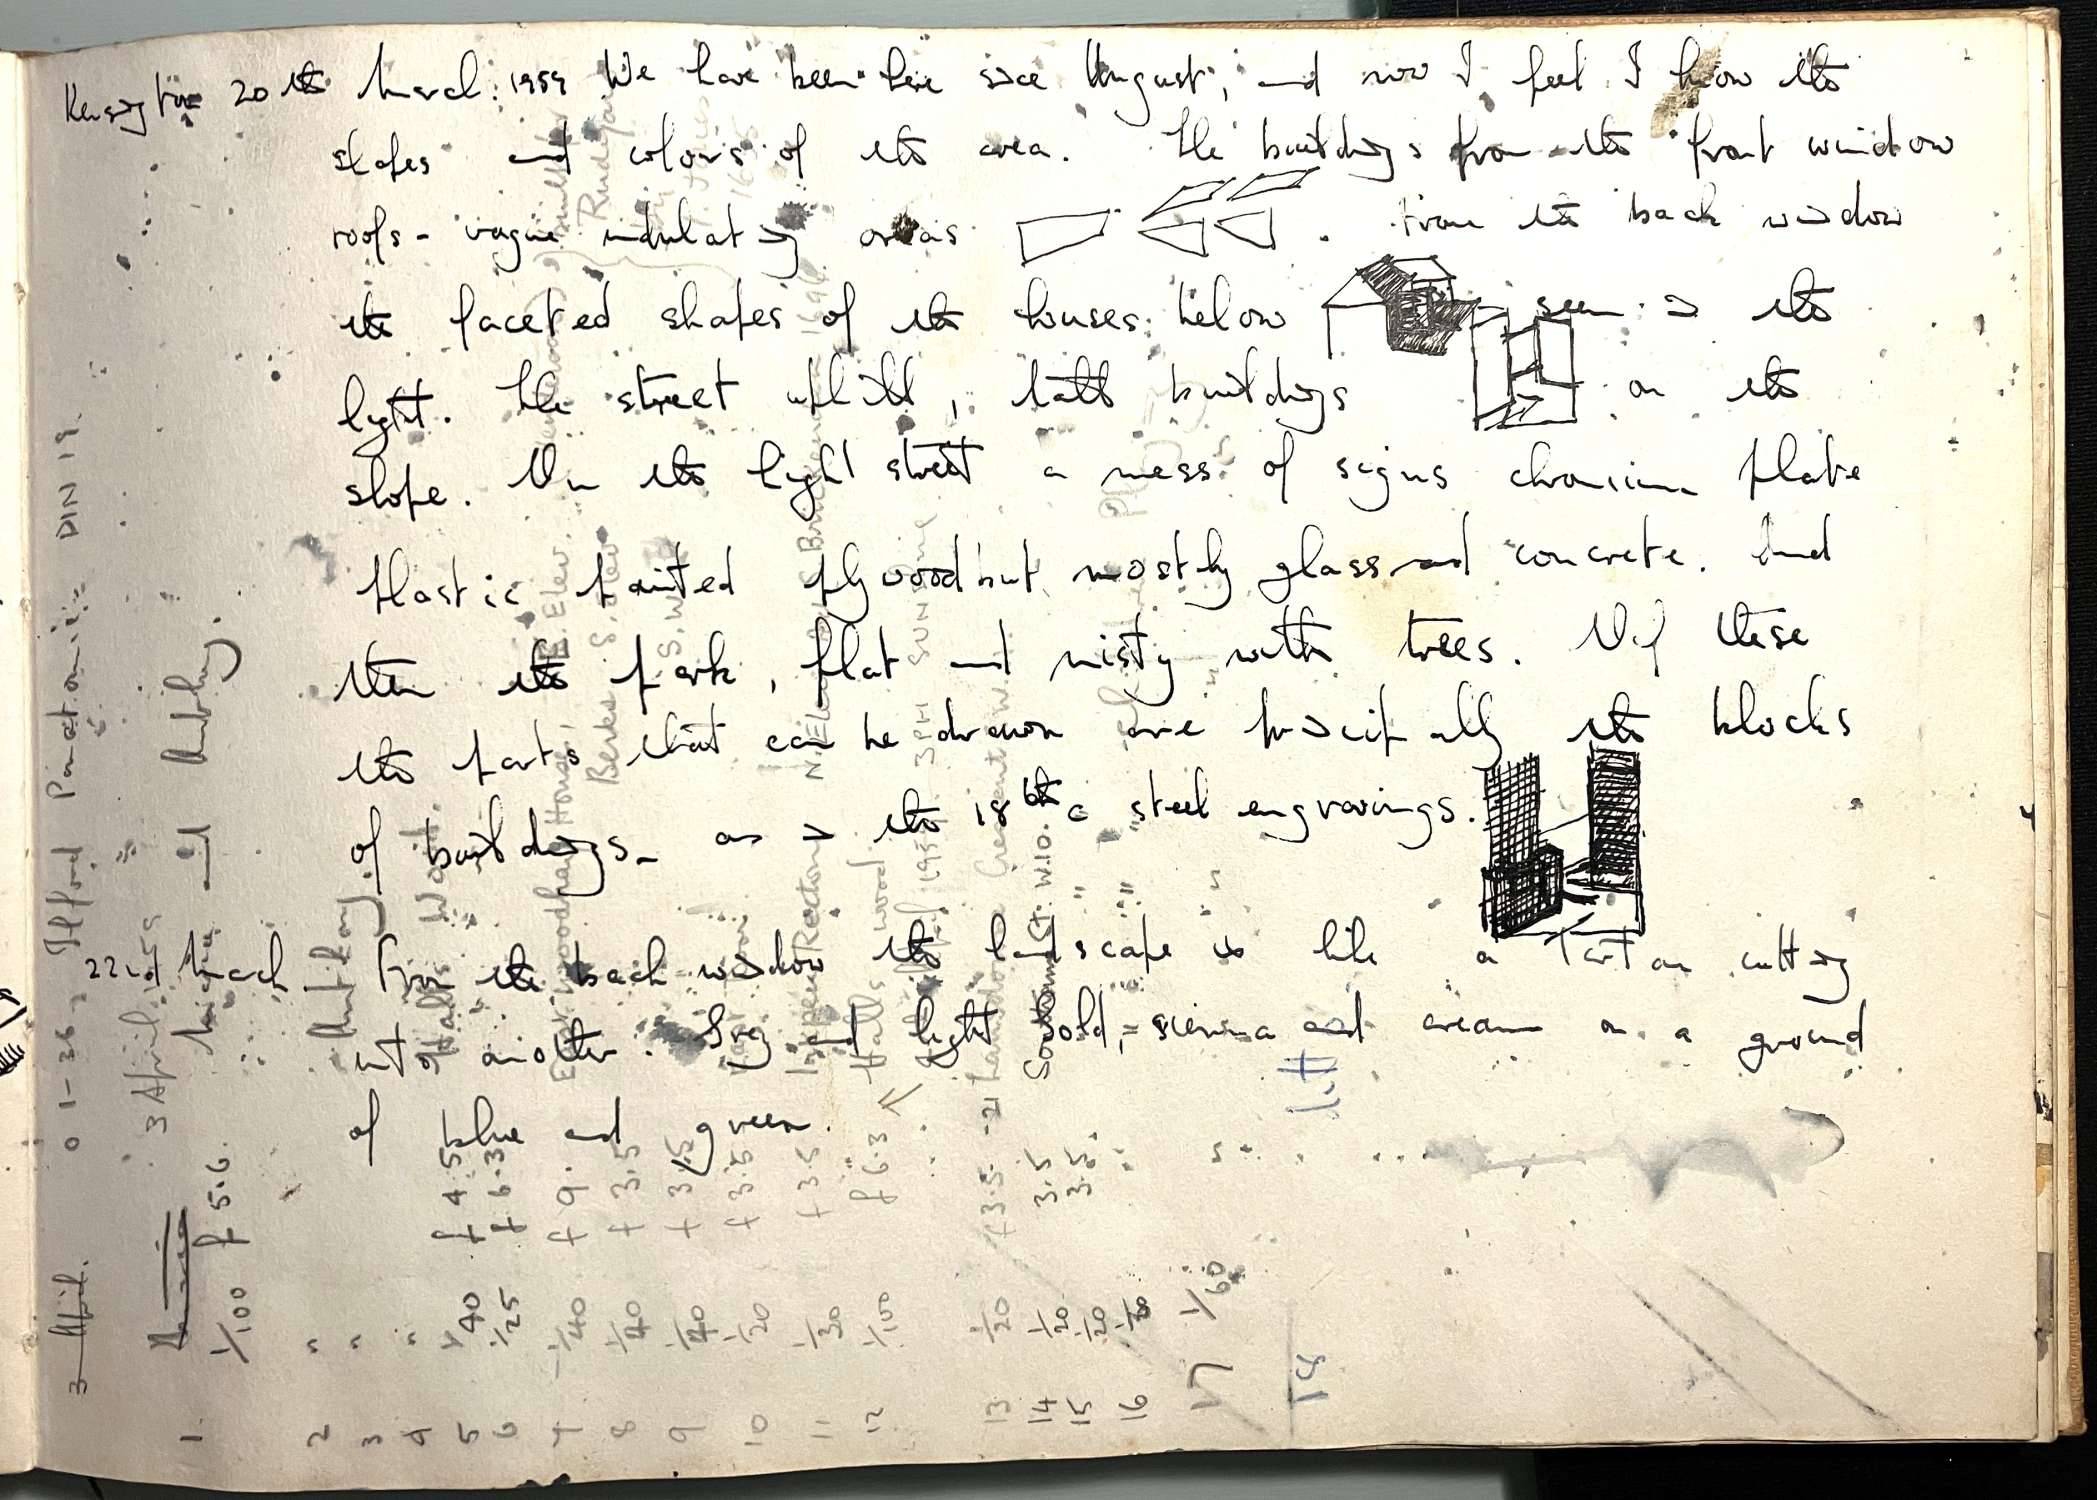 Kensington 20th March 1959 We have been here since August, and now I feel I know the
shapes and colours of the area. The buildings from the front window
roofs - vague undulating areas . From the back window
the faceted shapes of the houses below seen in the
light. The street uphill, tall buildings on the
slope. On the High street a mess of signs chromium plate
plastic painted plywood but mostly glass and concrete. And
then the park, flat and misty with trees. Of these
the parts that can be drawn are principally the blocks
of buildings - as in the 18th c steel engravings.
22nd March From the back window the landscape is like a tartan cutting
into another. Grey and light bold, sienna and cream on a ground
of blue and green.
3 April.
0 1-36 Ilford Panatomic DIN 19.
3 April 59
1. 1/100 f 5.6. and Anthony.
2 " Anthony.
3 "
4 " Halls Wait.
5 1/40 f 4.5
6 1/25 f 6.3
7 1/40 f 9. House, E. Elev.
8 1/40 f 3.5 Berks S. elev
9 1/40 f 3.5 S.W.
10 1/20 f 3.5
11 1/30 f 3.5 Inkpen Rectory N. Elev
12 1/100 f 6.3 Halls wood
April 1959. 3PM SUNSHINE
13 1/20 f 3.5 21 Lansdowne Crescent W.11.
14 1/20 3.5 Southam St. W.10.
15 1/20 3.5 " "
16 " "
17 1/60 "
18